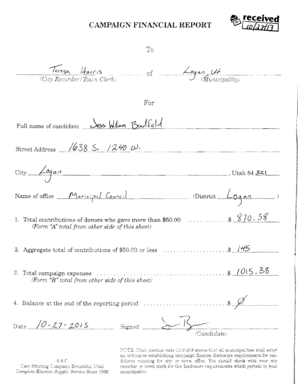 CAMPAIGN FINANCIAL REPORT
received
10/27/13
To
Teresa Harris of Logan, Ut
(City Recorder/Town Clerk) (Municipality)
For
Full name of candidate Jess William Bradfield
Street Address 1638 S 1240 W.
City Logan , Utah 84321
Name of office Municipal Council (District Logan )
1. Total contributions of donors who gave more than $50.00 $ 870.38
(Form "A" total from other side of this sheet)
2. Aggregate total of contributions of $50.00 or less $ 145
3. Total campaign expenses $ 1015.38
(Form "B" total from other side of this sheet)
4. Balance at the end of the reporting period $ 0
Date 10-27-2013 Signed
(Candidate)
Carr Printing Company Bountiful, Utah
Complete Election Supply Service Since
NOTE: Utah section code 10-3-208 states that all municipalities shall adopt
an ordinance establishing campaign finance disclosure requirements for can-
didates running for city or town office. You should check with your city
recorder or town clerk for the disclosure requirements which pertain to your
municipality.